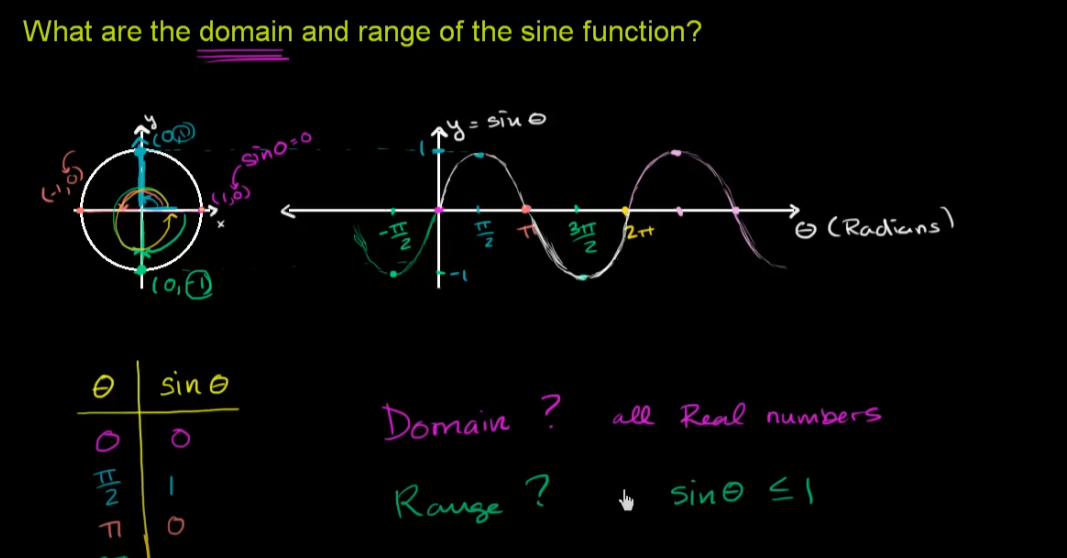 What are the domain and range of the sine function?
y
(0,1)
y = sin θ
sinθ=0
1
(-1,0)
(1,0)
x
-π/2
π/2
π
3π/2
2π
θ (Radians)
-1
(0,-1)
θ sin θ
0 0
π/2 1
π 0
Domain ? all Real numbers
Range ? sin θ ≤ 1